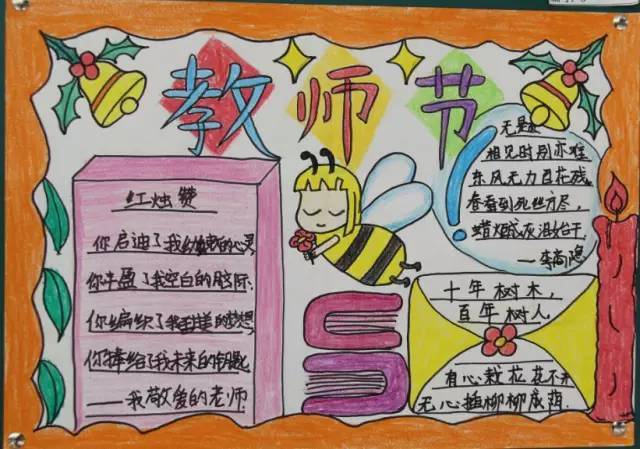 教师节
红烛赞
你启迪了我幼稚的心灵
你丰盈了我空白的脑际
你编织了我的梦想
你捧给了我未来的钥匙
——我敬爱的老师
无题
相见时别亦难
东风无力百花残。
春蚕到死丝方尽，
蜡成灰泪始干。
——李商隐
十年树木，
百年树人
有心栽花花不开
无心插柳柳成荫.